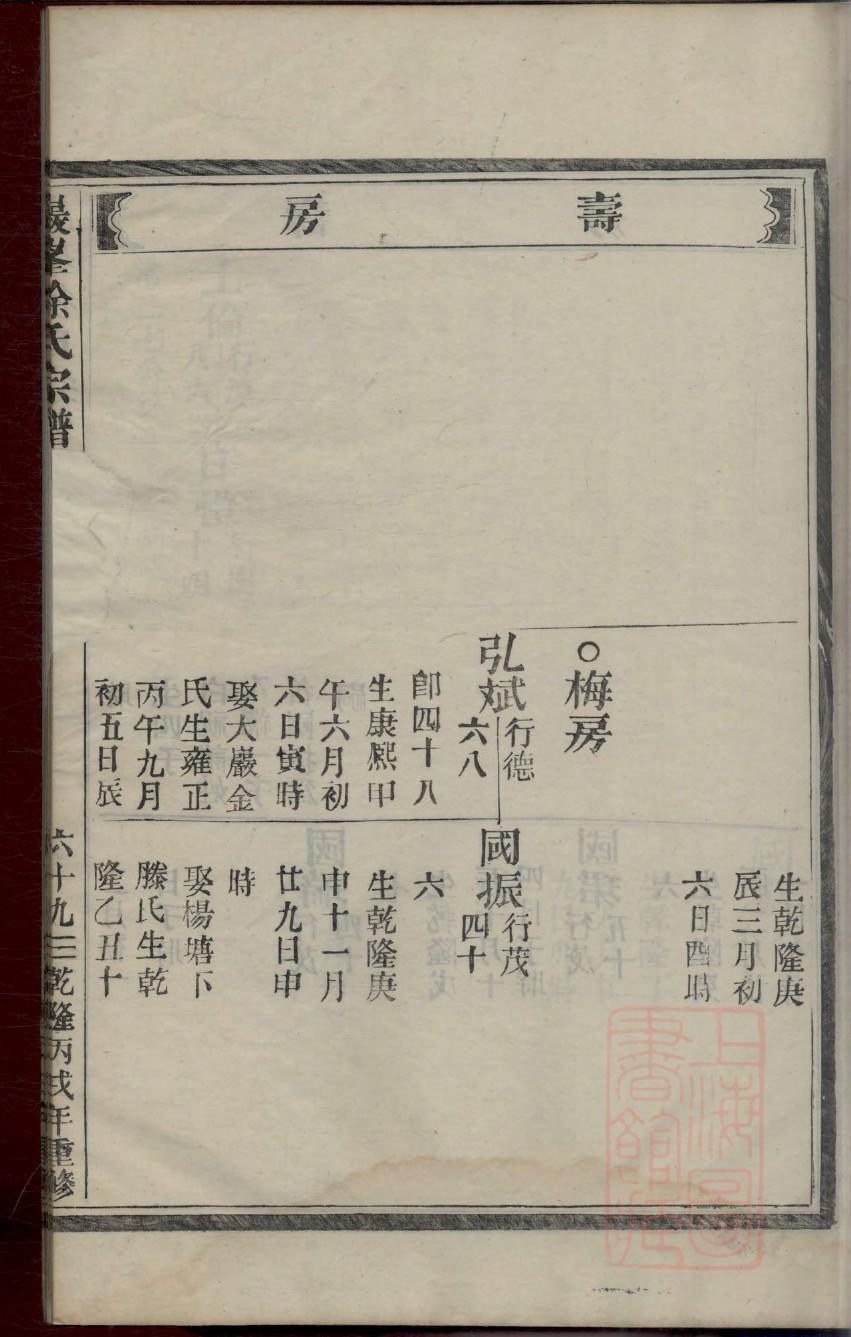 壽房
生乾隆庚
辰三月初
六日酉時
○梅房
弘斌行德
六八
卽四十八
生康熙甲
午六月初
六日寅時
娶大巖金
氏生雍正
丙午九月
初五日辰
國振行茂
四十
六
生乾隆庚
申十一月
廿九日申
時
娶楊塘下
滕氏生乾
隆乙丑十
峯徐氏宗譜
六十九
乾隆丙戌年重修
上海圖書館藏